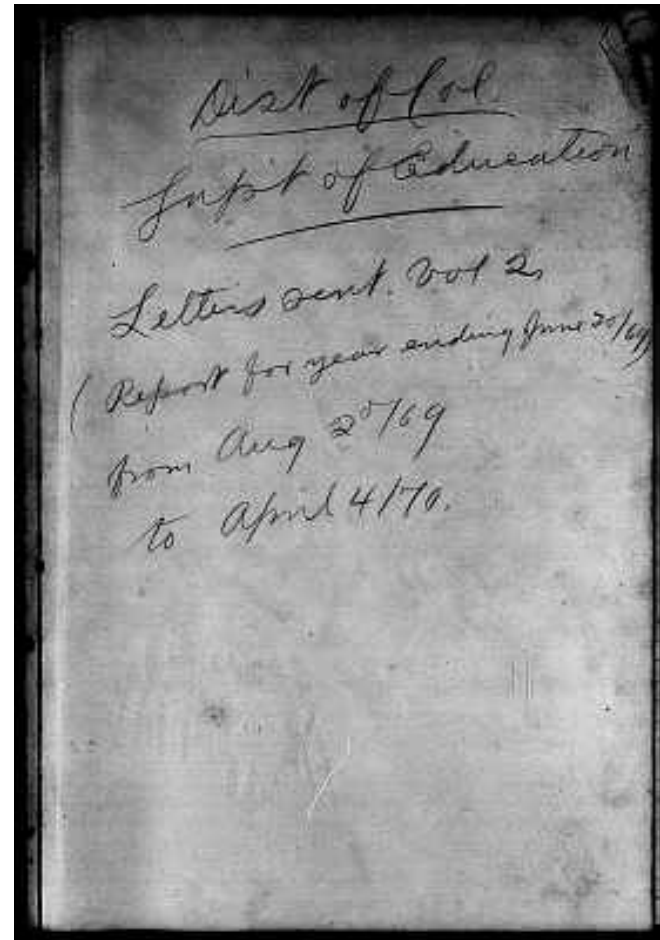 Dist of Col
Supt of Education
Letters sent. Vol 2.
(Report for year ending June 30/69)
from Aug 20/69
to April 4/70.